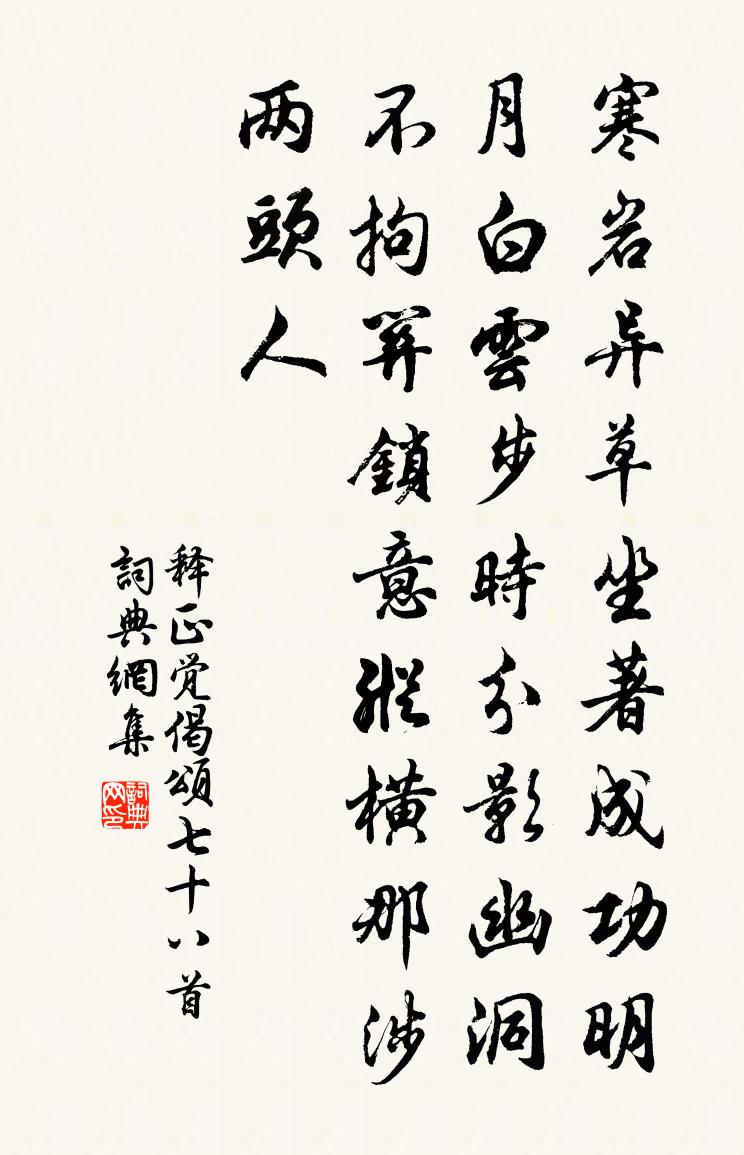 寒岩异草坐著成功明
月白雲步時分影幽洞
不拘關鎖意縱橫那涉
两頭人
释正觉偈頌七十八首
詞典網集
詞典网印